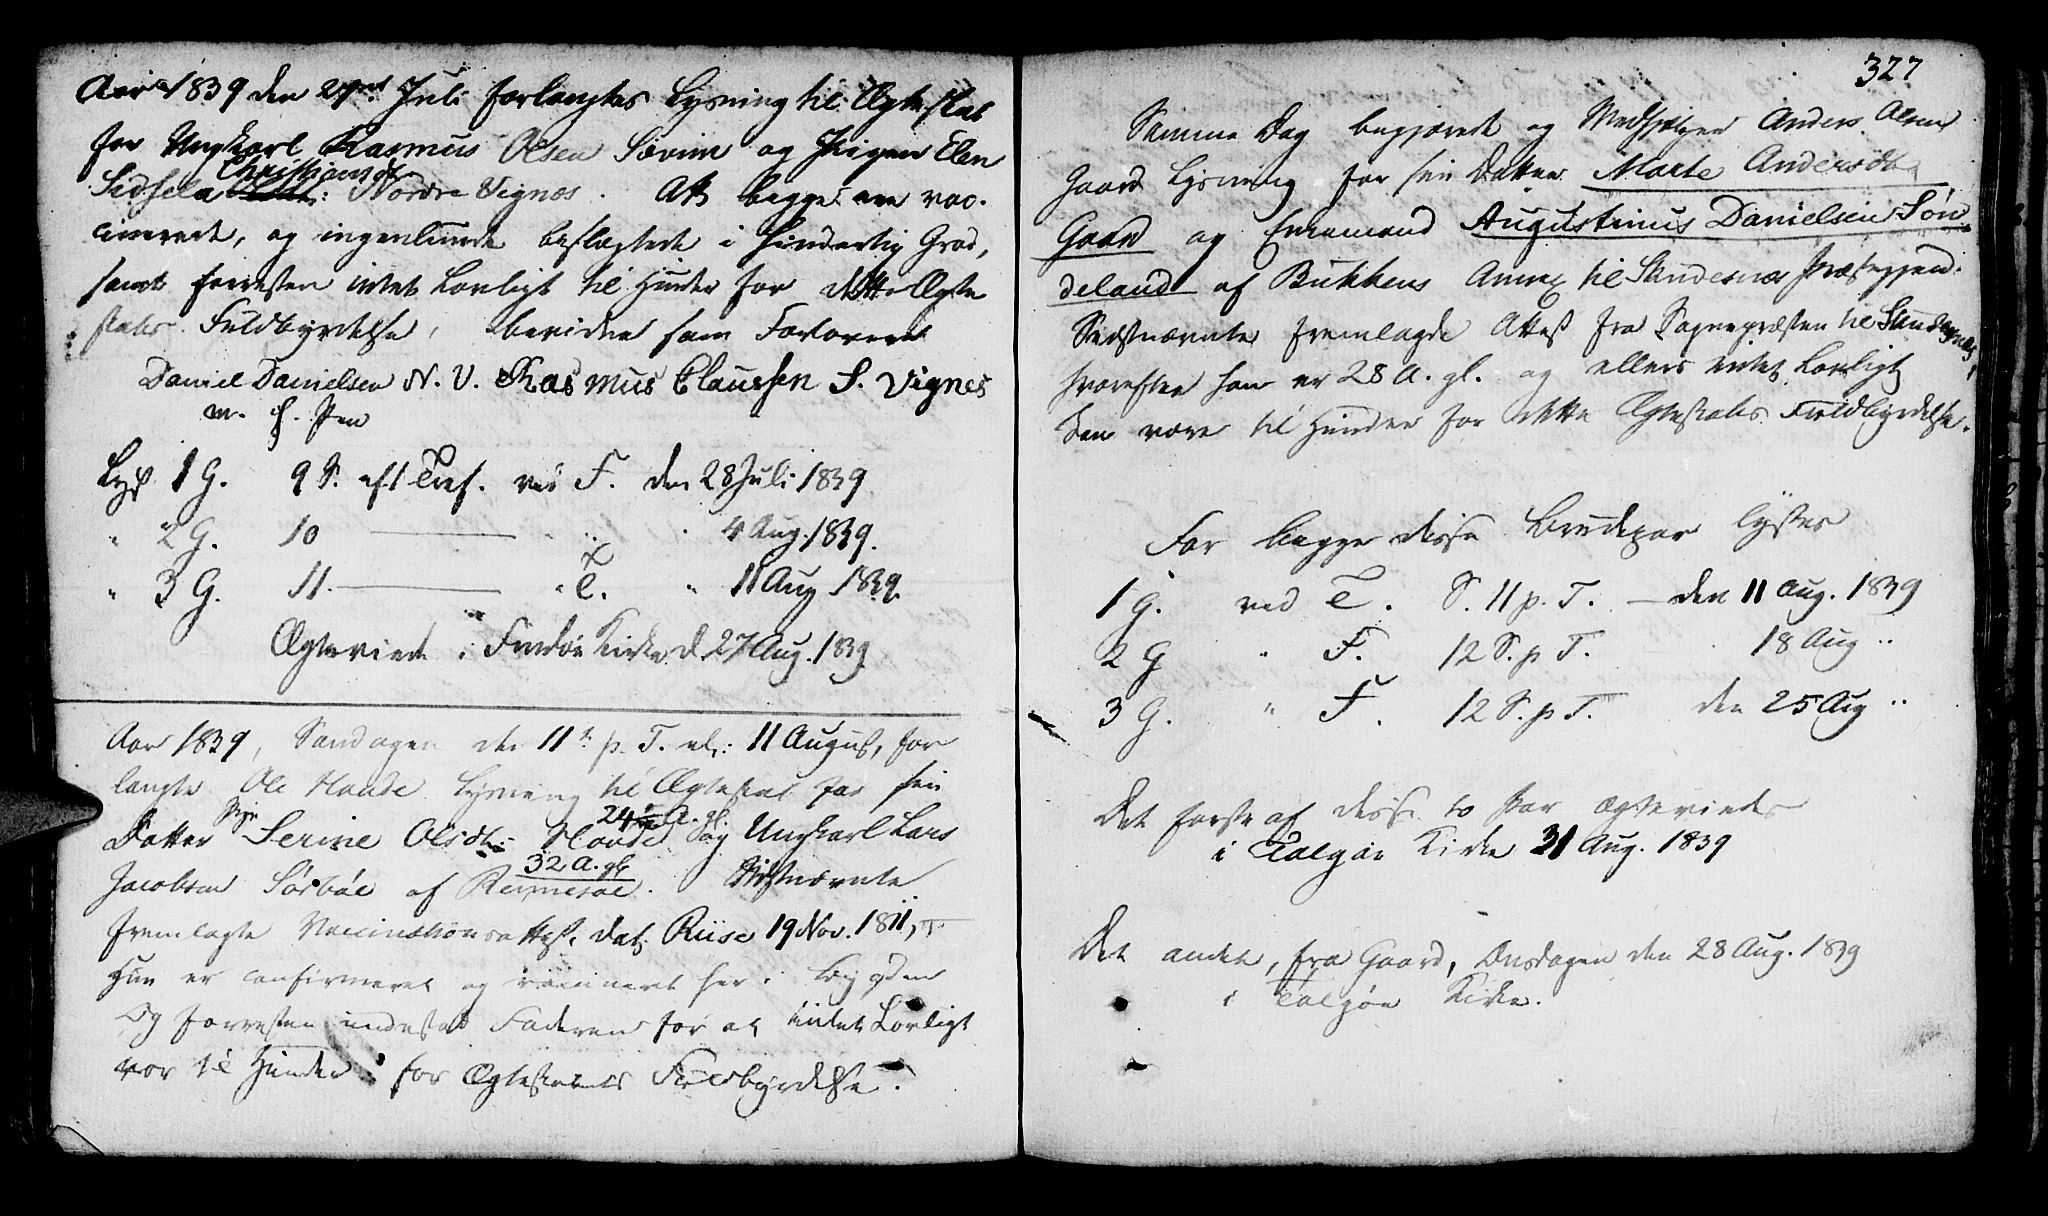 Aar 1839 den 27de Juli forlangtes Lysning til Ægteskab
for Ungkarl Rasmus Olsen Sørvim og Pigen Elen
Christiansdr
Sidsela Nordre Vignæs. At begge ere vac-
cinerede, og ingenlunde beslægtede i hinderlig Grad,
samt forresten intet Lovligt til Hinder for dette Ægte
skabs Fuldbyrdelse, bevidne som Forlovere
Daniel Danielsen N. V. Rasmus Claussen S. Vignes
m. f. Pen
Lyst 1 G. 9 S. eft Tref. ved F. den 28 Juli 1839
" 2 G. 10 " " 4 Aug. 1839.
" 3 G. 11 " T. " 11 Aug 1839.
Ægteviede i Findø Kirke d. 27 Aug. 1839
Aar 1839, Søndagen den 11te p. T. el: 11 August, for
langte Ole Haade Lysning til Ægteskab for sin
Pige 24 A. gl.
Datter Serine Olsdtr Haade og Ungkarl Lars
32 A. gl.
Jacobsen Sørbøe af Rennesøe. Sidstnævnte
fremlagde Vaccinationsattest, dat. Riise 19 Nov. 1811,
Hun er confirmeret og vaccineret her i Bygden
Og forresten indestod Faderen for at intet Lovligt
var til Hinder for Ægteskabets Fuldbyrdelse.
327
Samme Dag begjærede og Medhjelper Anders Olsen
Gaard Lysning for sin Datter Marte Andersdtr
Gaard og Enkemand Augustinus Danielsen Søn
deland af Bukkens Annex til Skudesnæs Præstegjeld.
Sidstnævnte fremlagde Attest fra Sognepræsten til Skudesnæs,
hvorefter han er 28 A. gl. og ellers intet Lovligt
kan være til Hinder for dette Ægteskabs Fuldbyrdelse.
For begge disse Brudepar lystes
1 G. ved T. S. 11 p. T. — den 11 Aug. 1839
2 G " F. 12 S. p T. 18 Aug "
3 G. " F. 12 S. p T. den 25 Aug "
Det første af disse to Par Ægteviedes
i Talgøe Kirke 31 Aug. 1839
Det andet, fra Gaard, Onsdagen den 28 Aug. 1839
i Talgøe Kirke.